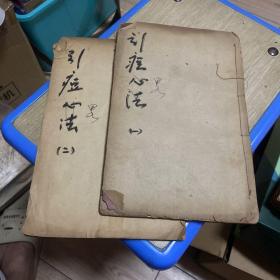 引痘心法(一)
引痘心法(二)